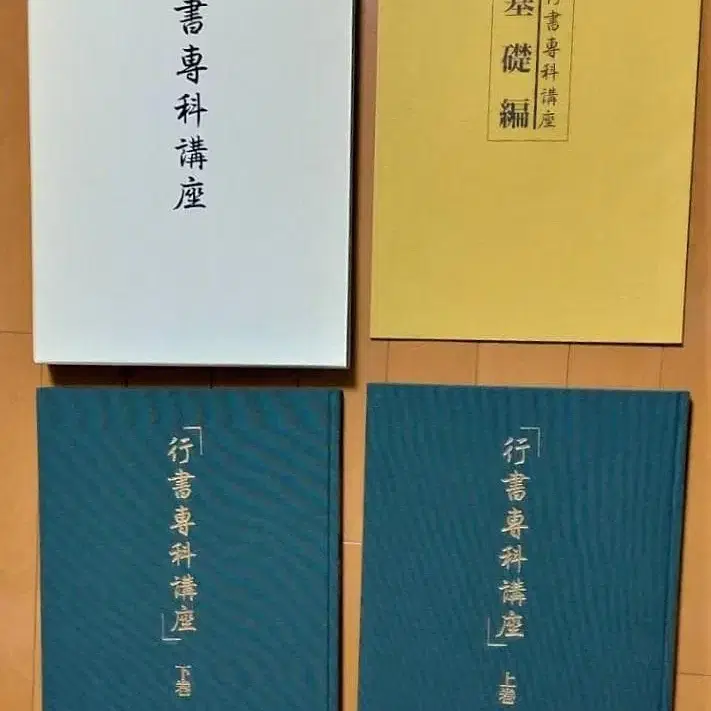 書専科講座
行書専科講座
基礎編
「行書専科講座」
下巻
「行書専科講座」
上巻